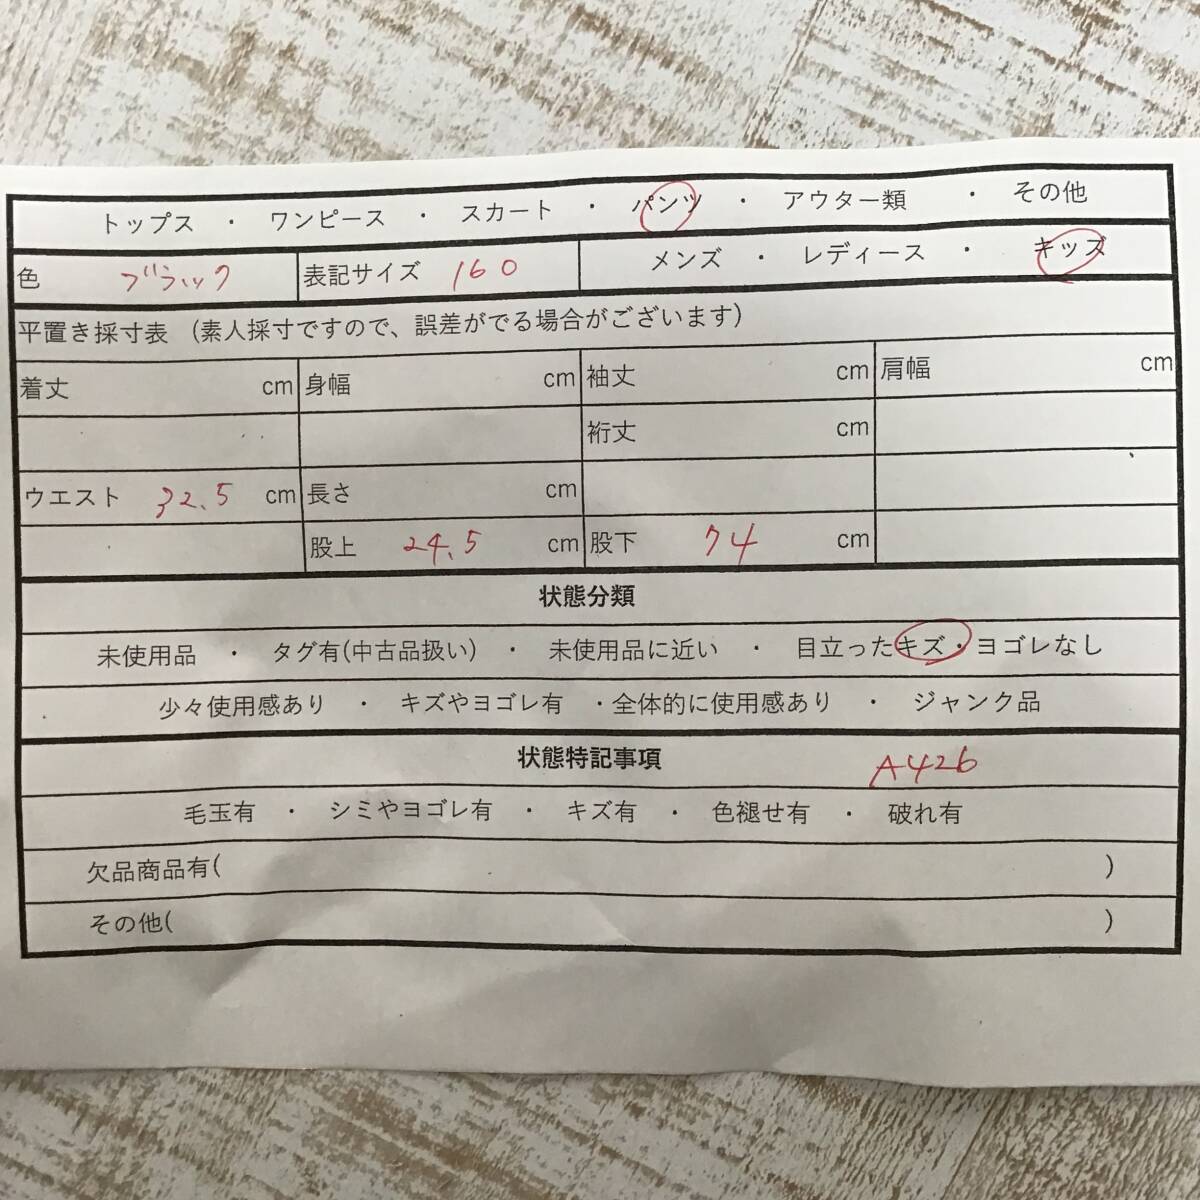 トップス ・ ワンピース ・ スカート ・ パンツ ・ アウター類 ・ その他
色 ブラック 表記サイズ 160 メンズ ・ レディース ・ キッズ
平置き採寸表 (素人採寸ですので、誤差がでる場合がございます)
着丈 cm 身幅 cm 袖丈 cm 肩幅 cm
裄丈 cm
ウエスト 32.5 cm 長さ cm
股上 24.5 cm 股下 74 cm
状態分類
未使用品 ・ タグ有(中古品扱い) ・ 未使用品に近い ・ 目立ったキズ・ヨゴレなし
少々使用感あり ・ キズやヨゴレ有 ・全体的に使用感あり ・ ジャンク品
状態特記事項 A426
毛玉有 ・ シミやヨゴレ有 ・ キズ有 ・ 色褪せ有 ・ 破れ有
欠品商品有( )
その他( )